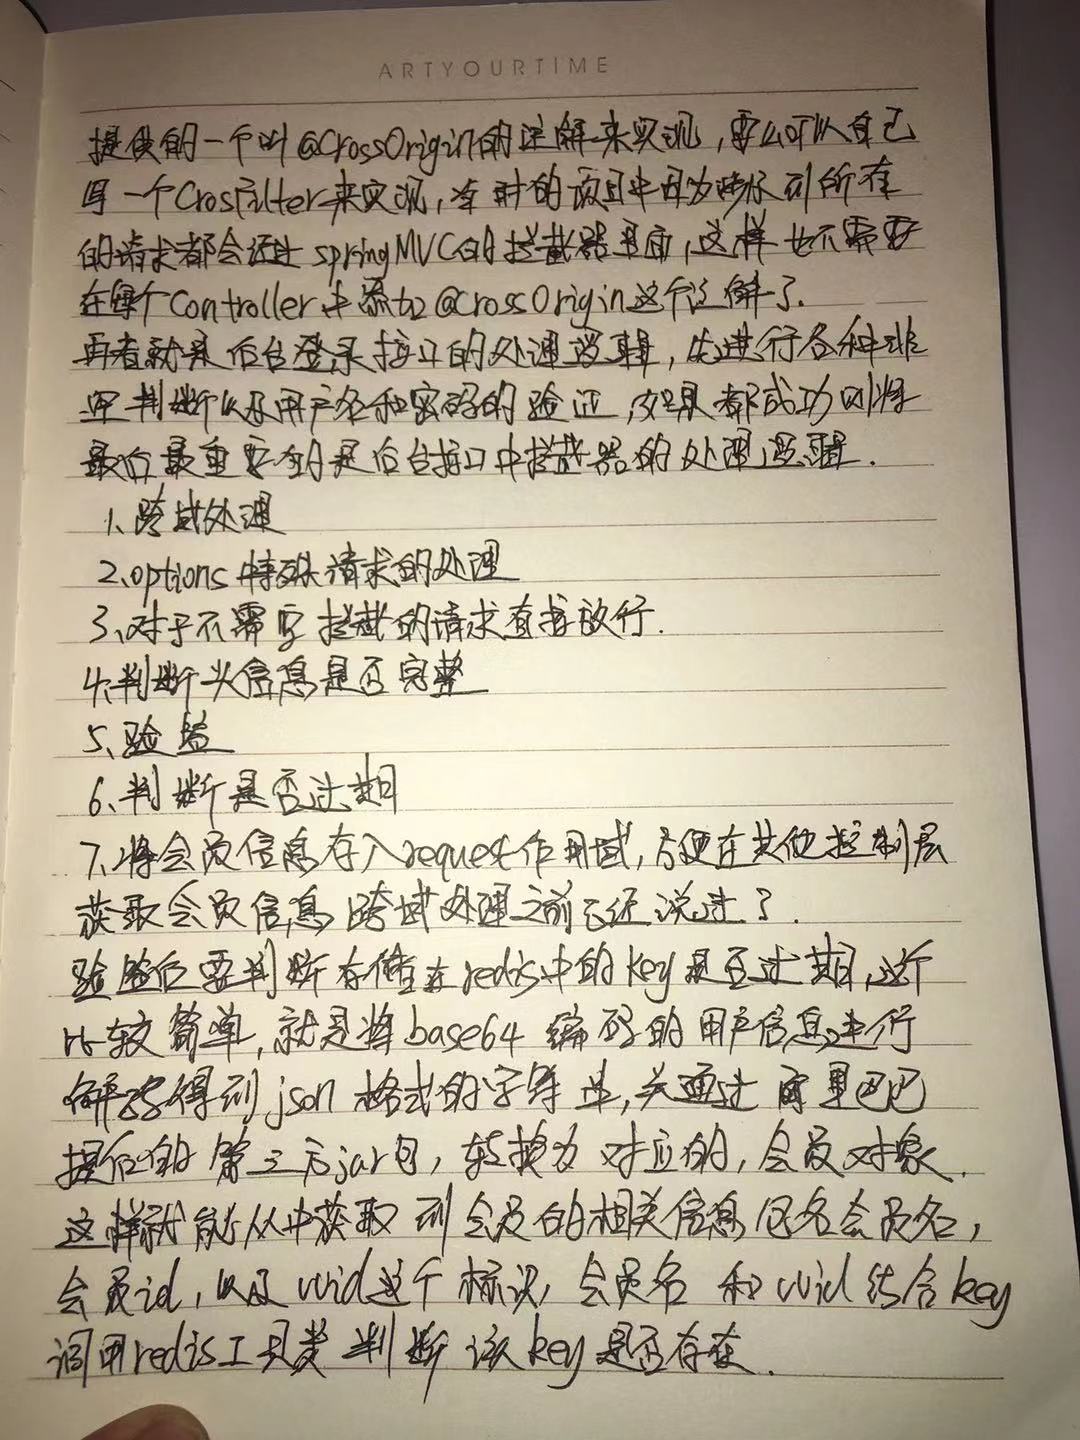 ARTYOURTIME
提供的一个叫@CrossOrigin的注解来实现,要么可以自己
写一个Crosfilter来实现,当时的项目中因为涉及到所有
的请求都会经过springMVC的拦截器里面,这样也不需要
在每个Controller中添加@CrossOrigin这个注解了.
再者就是后台登录接口的处理逻辑,先进行各种非
空判断以及用户名和密码的验证,如果都成功则将
最后最重要的是后台接口中拦截器的处理逻辑.
1、跨域处理
2、options特殊请求的处理
3、对于不需要拦截的请求直接放行.
4、判断头信息是否完整
5、验签
6、判断是否过期
7、将会员信息存入request作用域,方便在其他控制层
获取会员信息 跨域处理之前已经说过了.
验签后要判断存储在redis中的key是否过期,这个
比较简单,就是将base64 编码的用户信息进行
解密得到json 格式的字符串,并通过 阿里巴巴
提供的第三方jar包,转换为 对应的,会员对象.
这样就能从中获取到会员的相关信息包含会员名,
会员id,以及uuid这个标识,会员名 和uuid结合key
调用redis工具类判断该key是否存在.